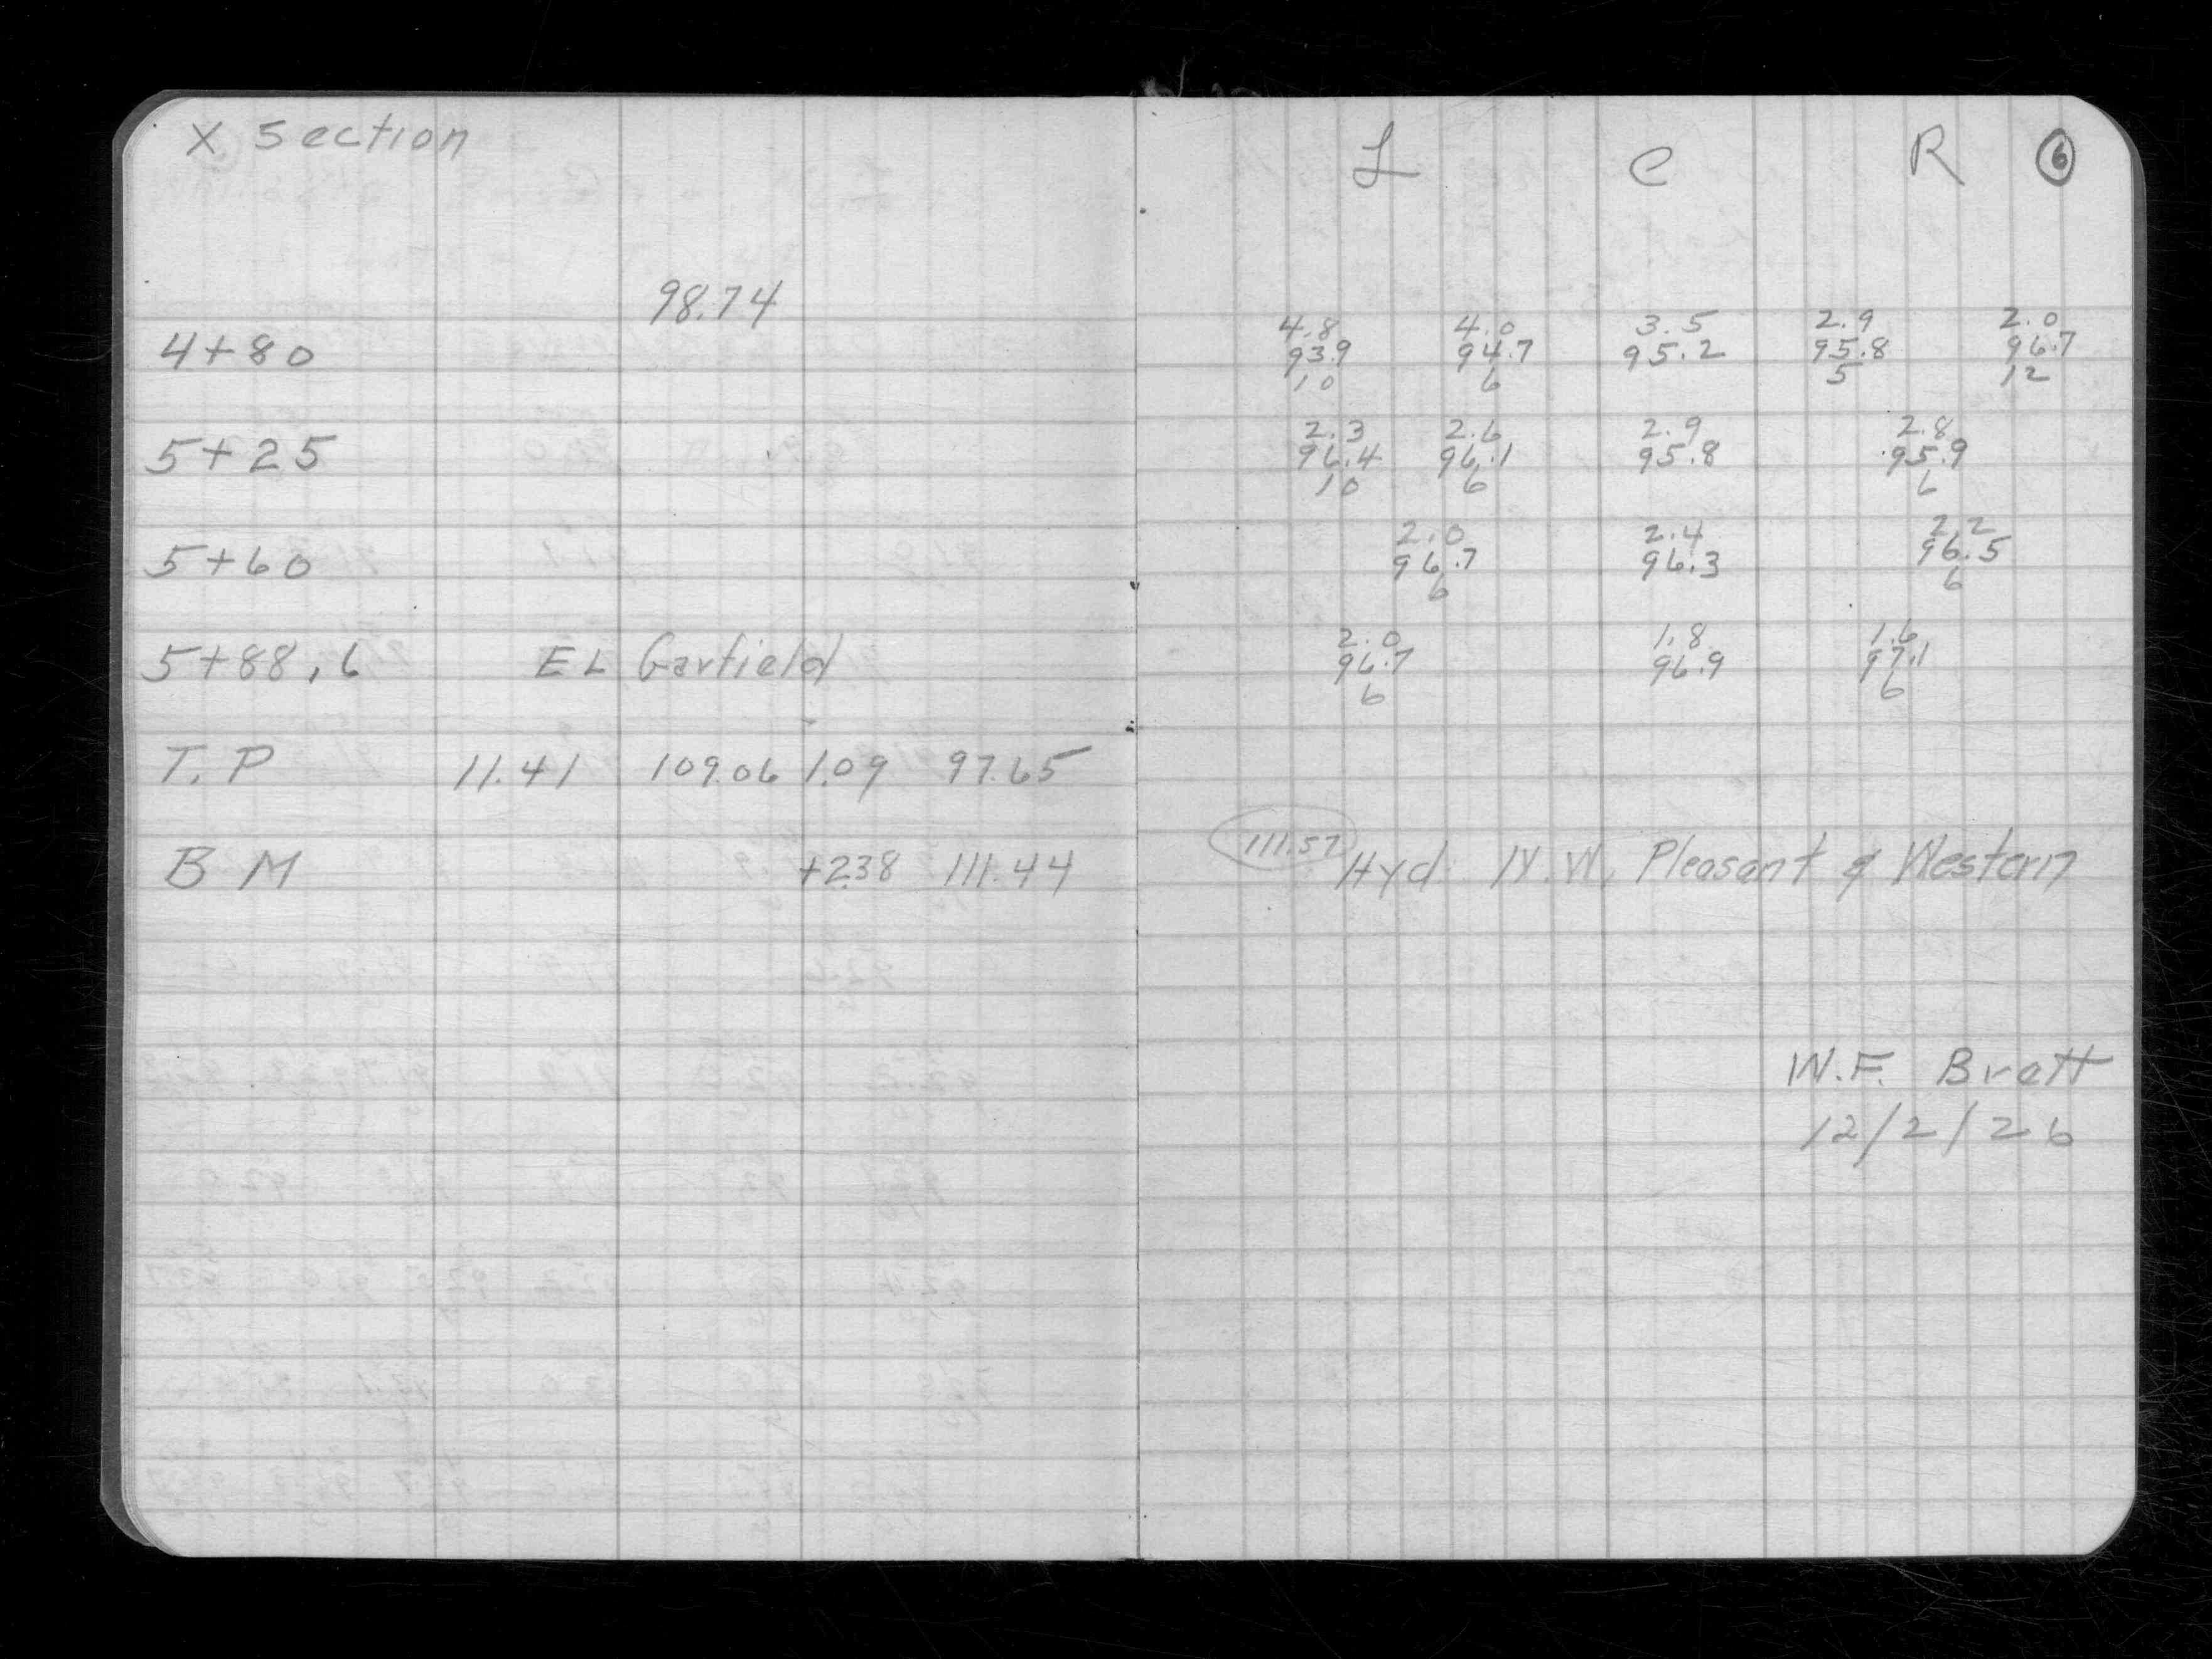 X Section
L C R 6
98.74
4+80 4.8 4.0 3.5 2.9 2.0
93.9 94.7 95.2 95.8 96.7
10 6 5 12
5+25 2.3 2.6 2.9 2.8
96.4 96.1 95.8 95.9
10 6 6
5+60 2.0 2.4 2.2
96.7 96.3 96.5
6 6
5+88.6 EL Garfield 2.0 1.8 1.6
96.7 96.9 97.1
6 6
T.P 11.41 109.06 1.09 97.65
BM +2.38 111.44 111.57 Hyd N.W. Pleasant & Western
W.F. Brett
12/2/26